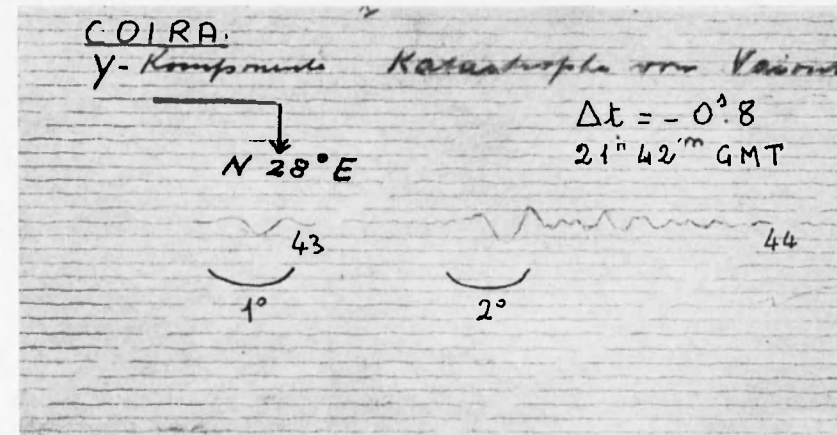 COIRA.
Y-Komponente Katastrophe von Vaiont
Δt = - 0ˢ.8
21ʰ 42ᵐ GMT
N 28° E
43
44
1°
2°